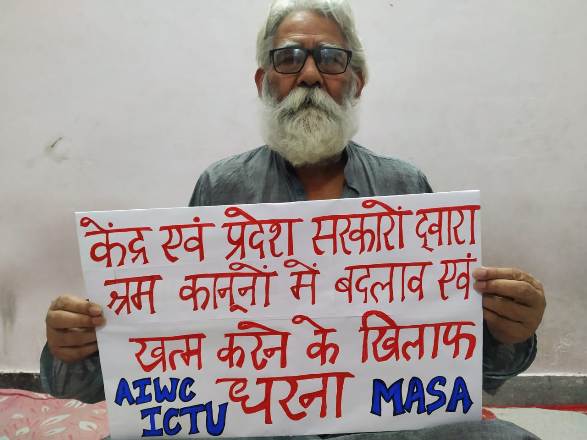 केंद्र एवं प्रदेश सरकारों द्वारा
श्रम कानूनों में बदलाव एवं
खत्म करने के खिलाफ
AIWC ICTU धरना MASA